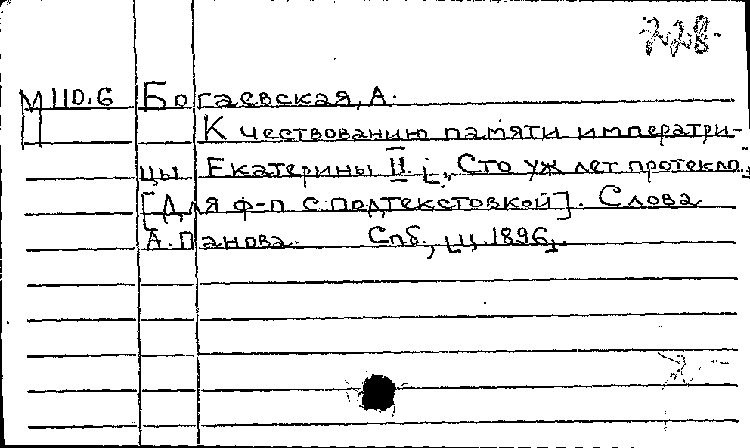 228
М 110.6 Богаевская, А.
К чествованию памяти императри-
цы Екатерины II. „Сто уж лет протекло..
[Для ф-п с подтекстовкой]. Слова
А. Панова. Спб, ц. 1896,